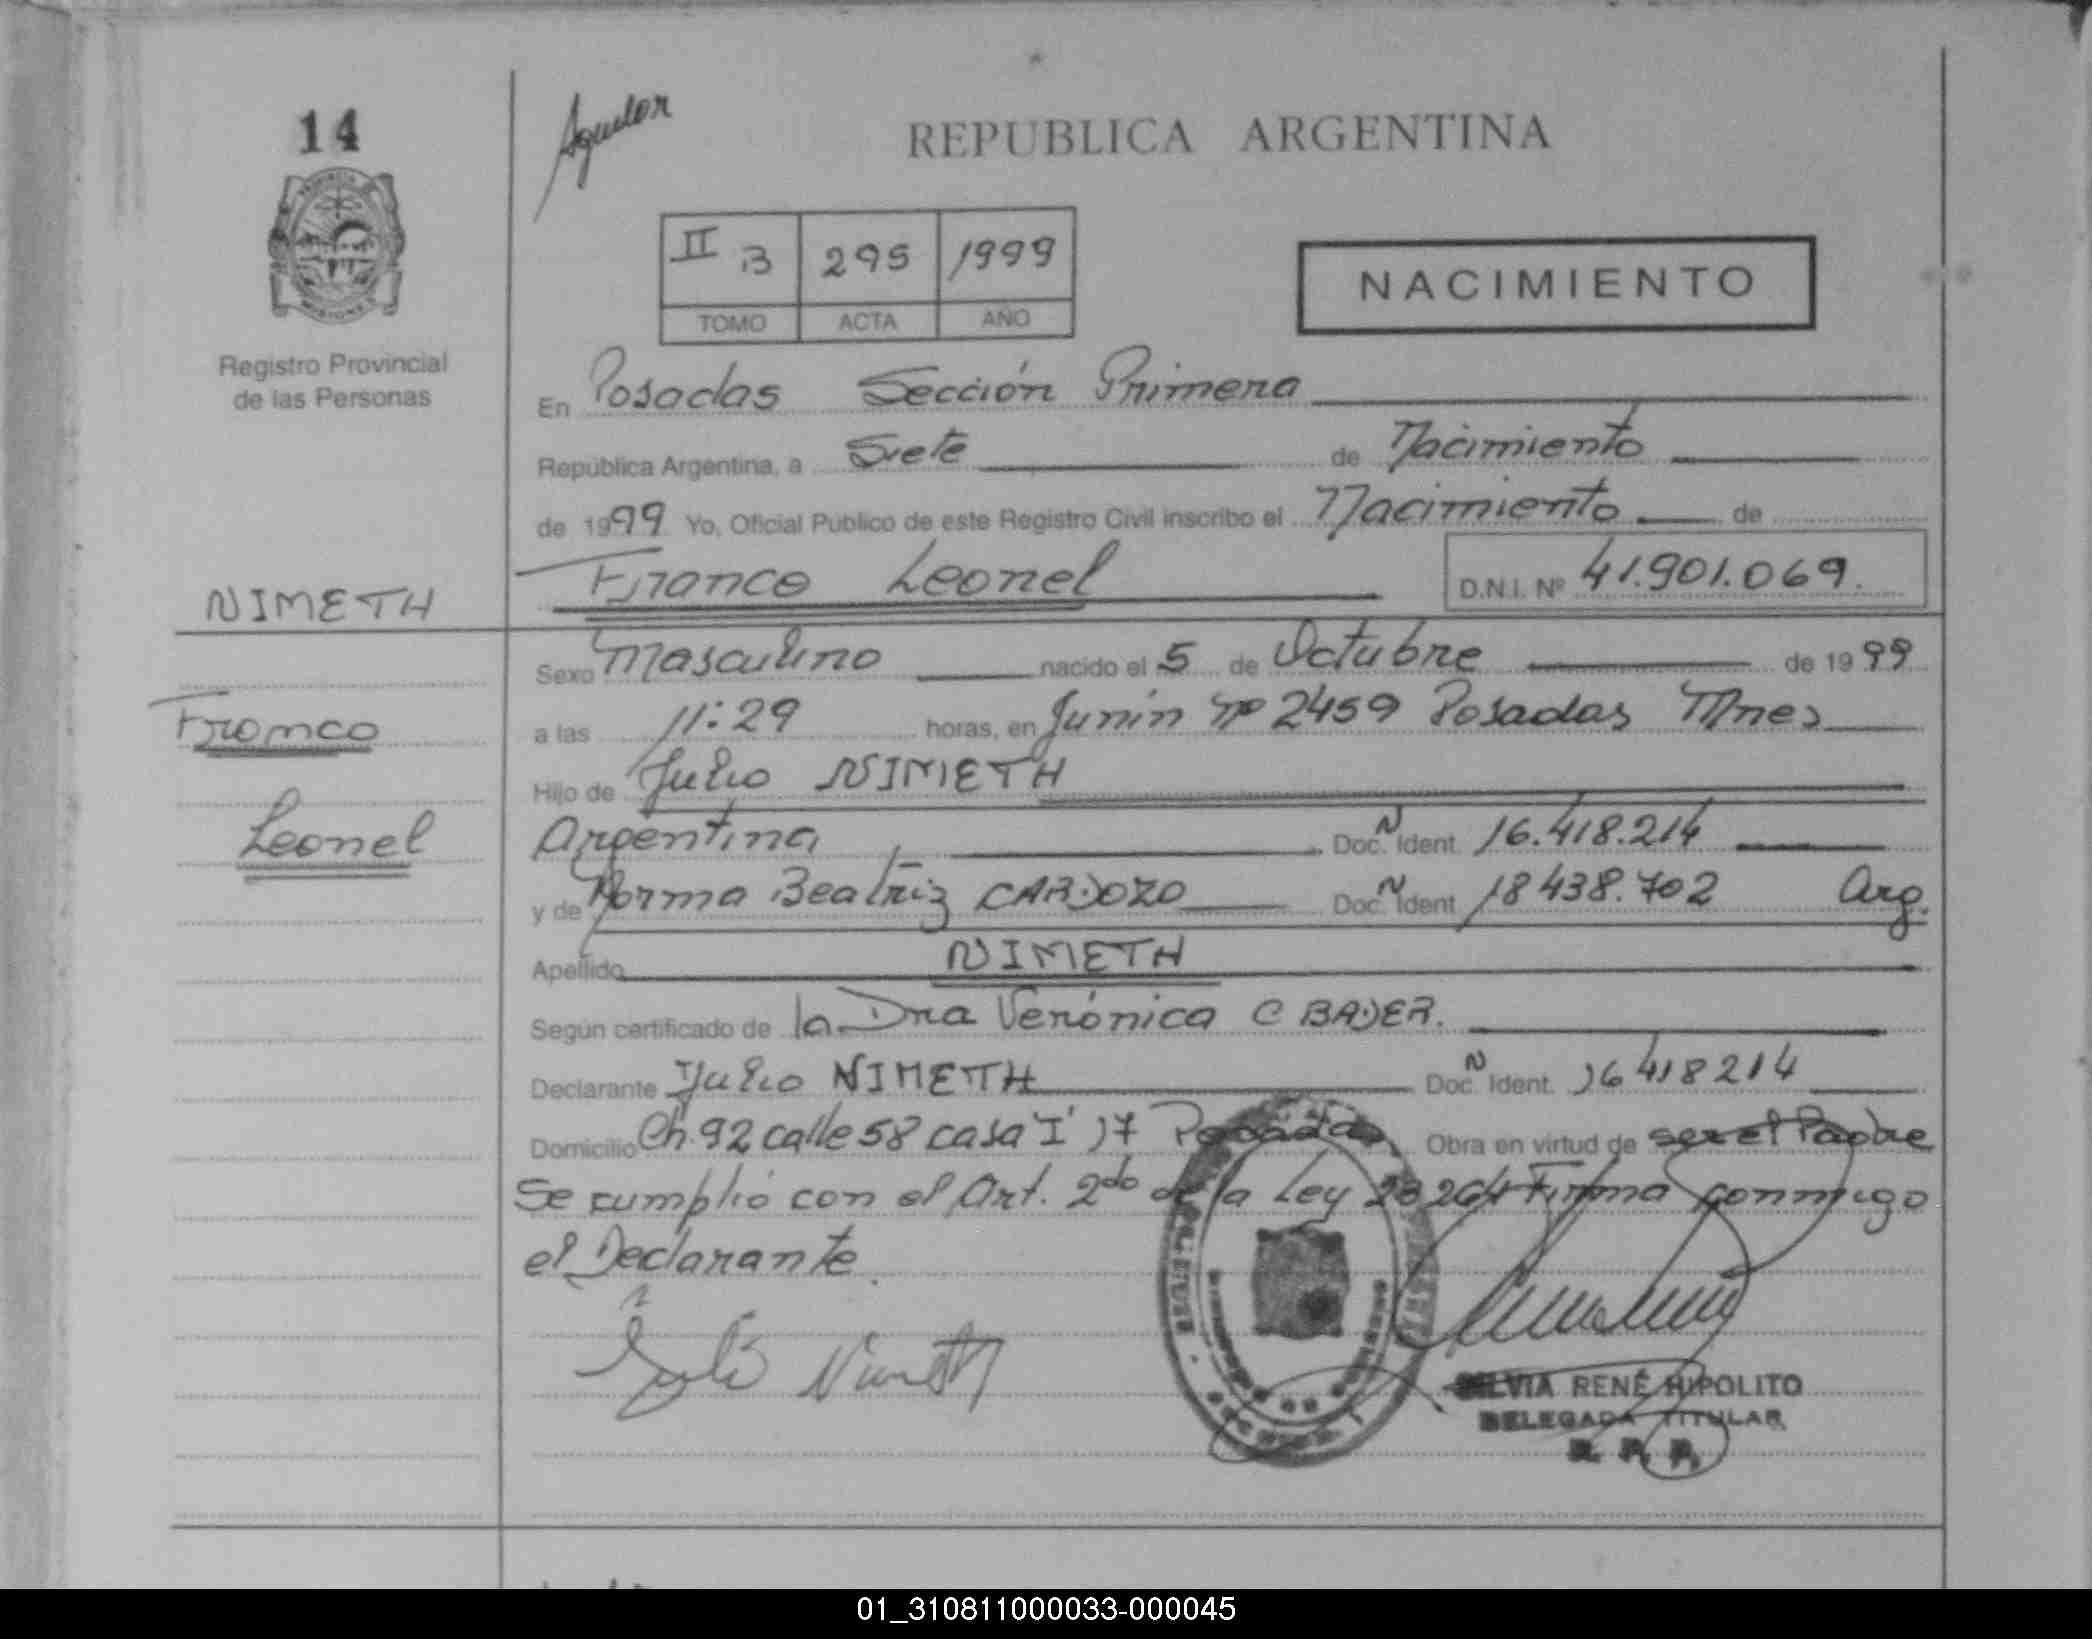 14
Aguilar
REPUBLICA ARGENTINA
II B 295 1999
TOMO ACTA AÑO
NACIMIENTO
Registro Provincial
de las Personas
En Posadas Sección Primera
República Argentina, a Siete de Nacimiento
de 1999 Yo, Oficial Público de este Registro Civil inscribo el Nacimiento de
Franco Leonel D.N.I. Nº 41.901.069.
NIMETH
Franco
Leonel
Sexo Masculino nacido el 5 de Octubre de 1999
a las 11:29 horas, en Junín Nº 2459 Posadas Mnes
Hijo de Julio NIMETH
Argentina Doc. Ident. 16.418.214
y de Norma Beatriz CARDOZO Doc. Ident. 18 438.702 Arg.
Apellido NIMETH
Según certificado de la Dra Verónica C BADER.
Declarante Julio NIMETH Doc. Ident. 16 418 214
Domicilio Ch. 92 calle 58 casa I 17 Posadas Obra en virtud de ser el Padre
Se cumplió con el Art. 2do de la Ley 23264 Firma conmigo
el Declarante.
Julio Nimeth
SILVIA RENÉ HIPOLITO
DELEGADA TITULAR
R. P. P.
01_310811000033-000045